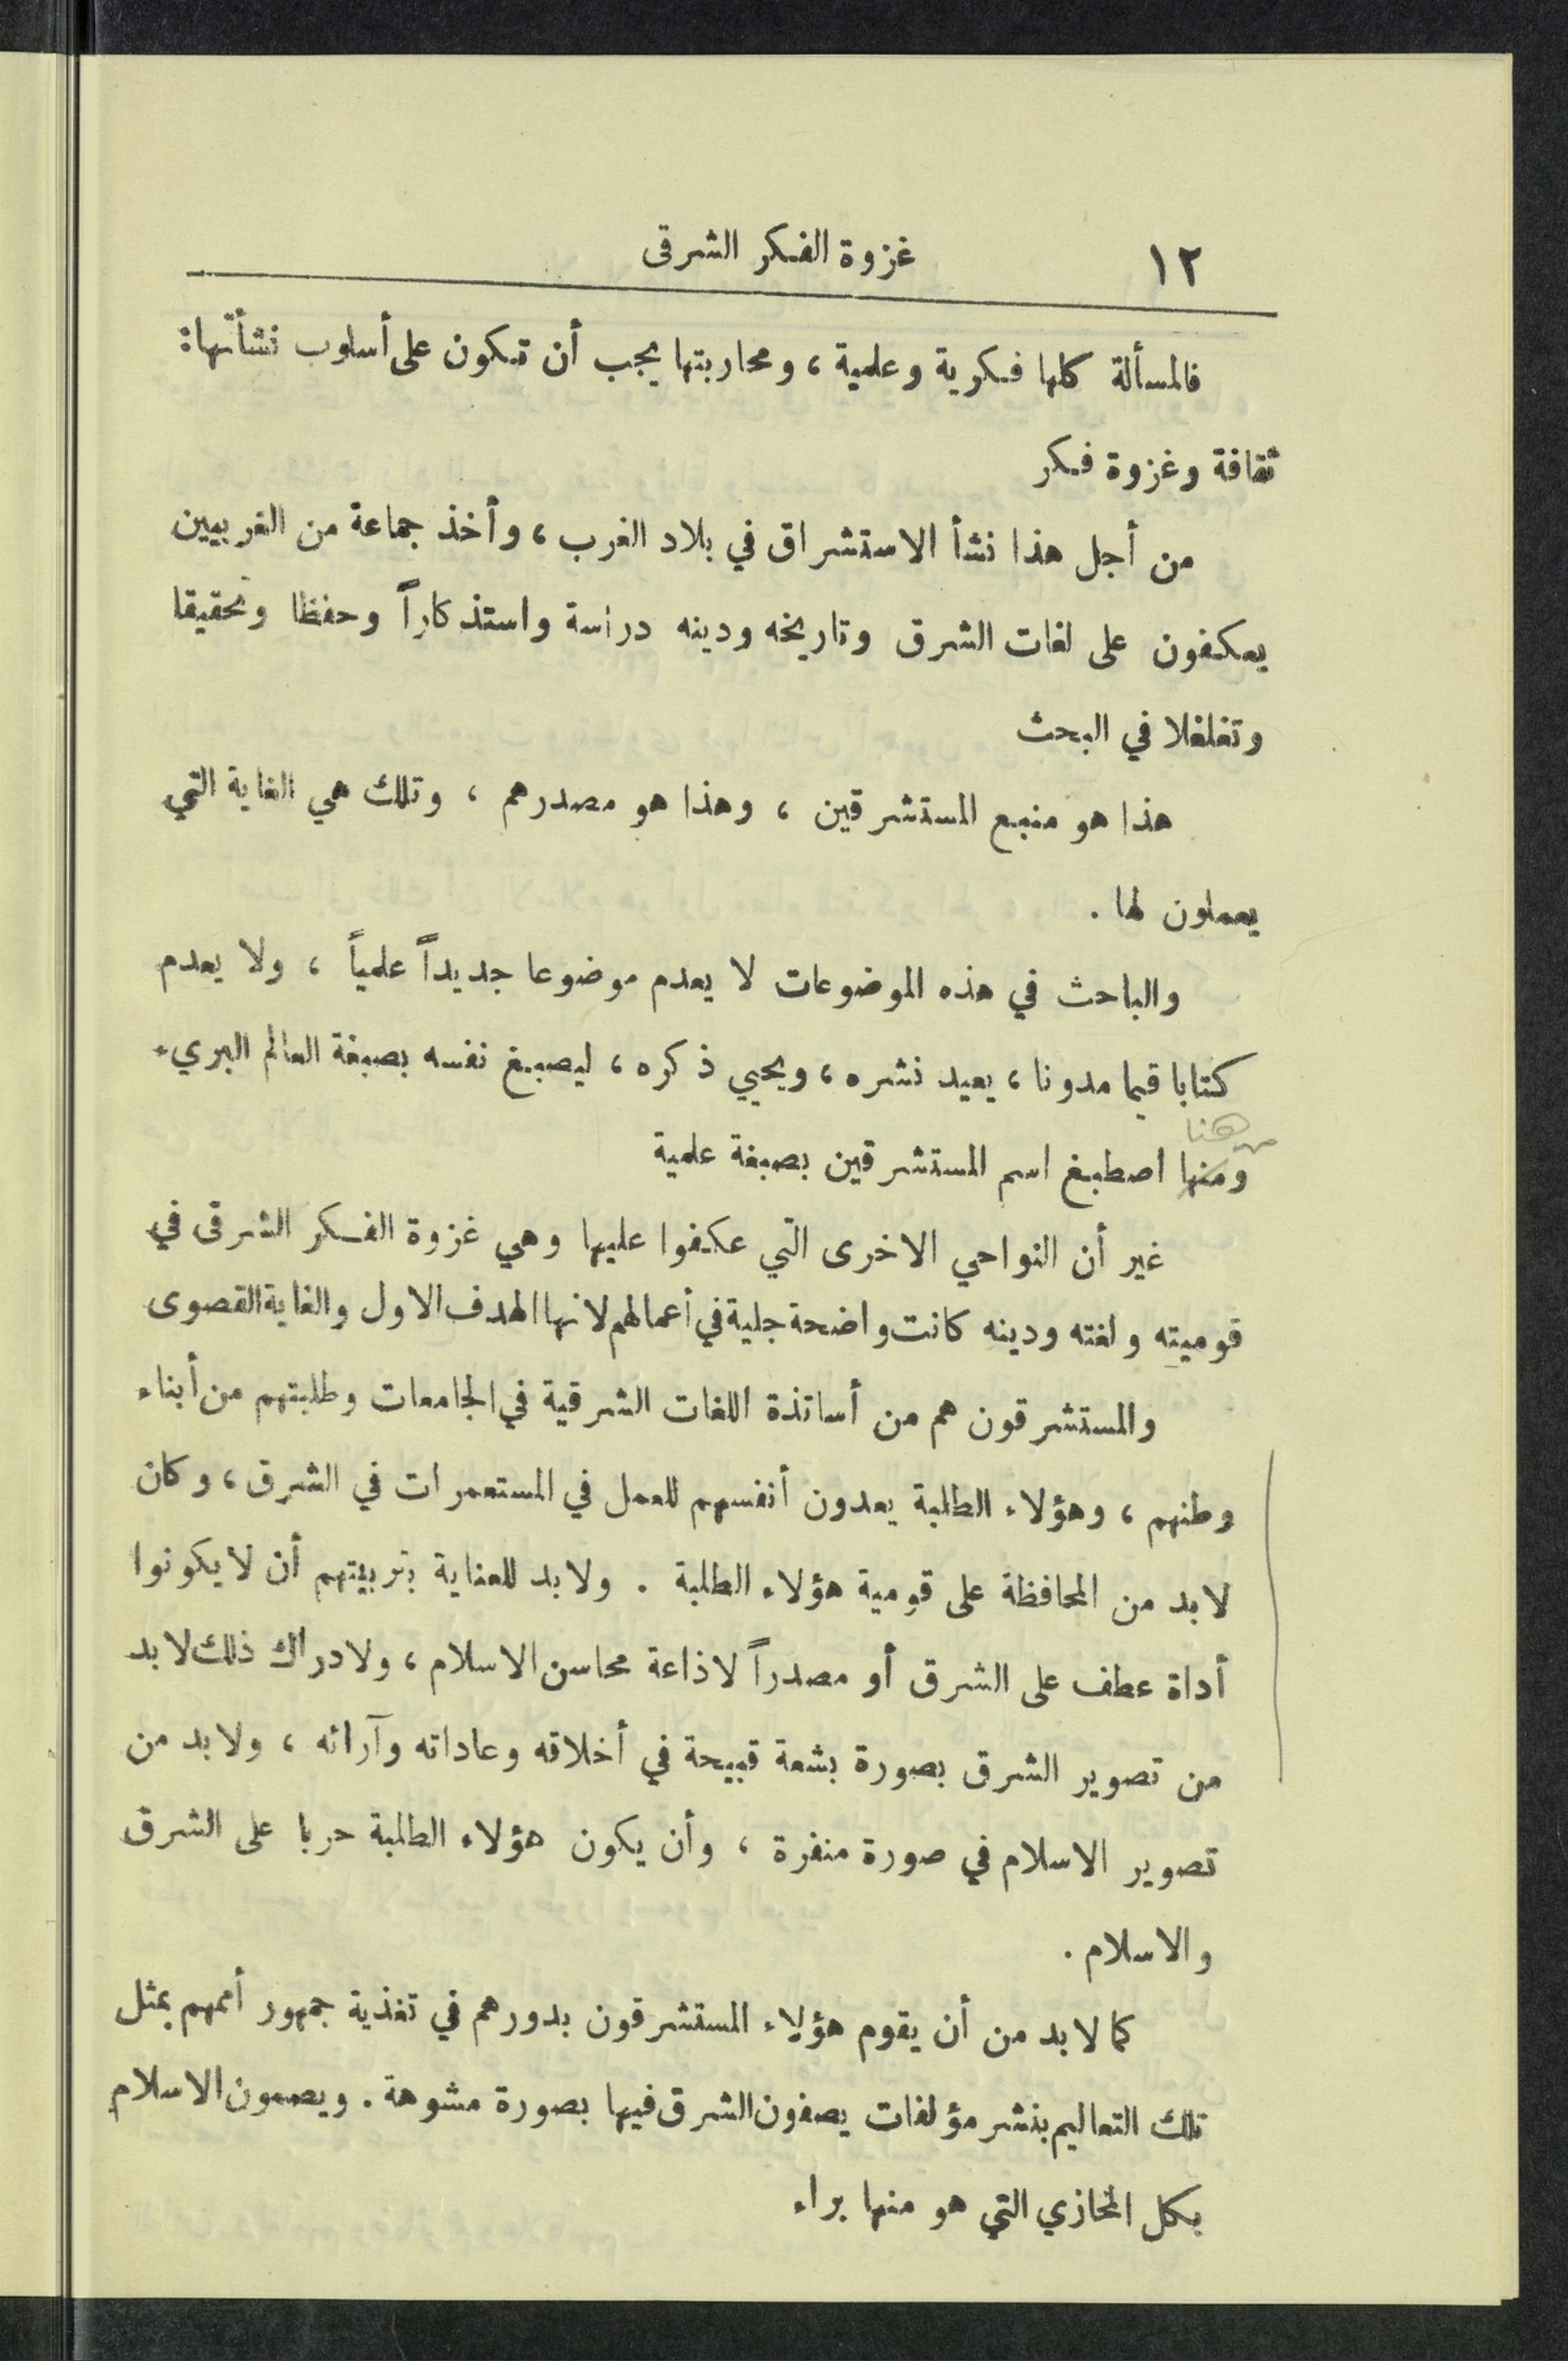 ١٢ غزوة الفكر الشرقى
فالمسألة كلها فكرية وعلمية ، ومحاربتها يجب أن تكون على أسلوب نشأتها :
ثقافة وغزوة فكر
من أجل هذا نشأ الاستشراق في بلاد الغرب ، وأخذ جماعة من الغربيين
يعكفون على لغات الشرق وتاريخه ودينه دراسة واستذكاراً وحفظا وتحقيقا
وتغلغلا في البحث
هذا هو منبع المستشرقين ، وهذا هو مصدرهم ، وتلك هي الغاية التي
يعملون لها .
والباحث في هذه الموضوعات لا يعدم موضوعا جديداً علمياً ، ولا يعدم
كتابا قيما مدونا ، يعيد نشره ، ويحيي ذكره ، ليصبغ نفسه بصبغة العالم البريء
من هنا
ومنها اصطبغ اسم المستشرقين بصبغة علمية
غير أن النواحي الاخرى التي عكفوا عليها وهي غزوة الفكر الشرقى في
قوميته ولغته ودينه كانت واضحة جلية في أعمالهم لانها الهدف الاول والغاية القصوى
والمستشرقون هم من أساتذة اللغات الشرقية في الجامعات وطلبتهم من أبناء
وطنهم ، وهؤلاء الطلبة يعدون أنفسهم للعمل في المستعمرات في الشرق ، وكان
لابد من المحافظة على قومية هؤلاء الطلبة . ولابد للعناية بتربيتهم أن لا يكونوا
أداة عطف على الشرق أو مصدراً لاذاعة محاسن الاسلام ، ولادراك ذلك لابد
من تصوير الشرق بصورة بشعة قبيحة في أخلاقه وعاداته وآرائه ، ولابد من
تصوير الاسلام في صورة منفرة ، وأن يكون هؤلاء الطلبة حربا على الشرق
والاسلام .
كما لابد من أن يقوم هؤلاء المستشرقون بدورهم في تغذية جمهور أممهم بمثل
تلك التعاليم بنشر مؤلفات يصفون الشرق فيها بصورة مشوهة . ويصمون الاسلام
بكل المخازي التي هو منها براء